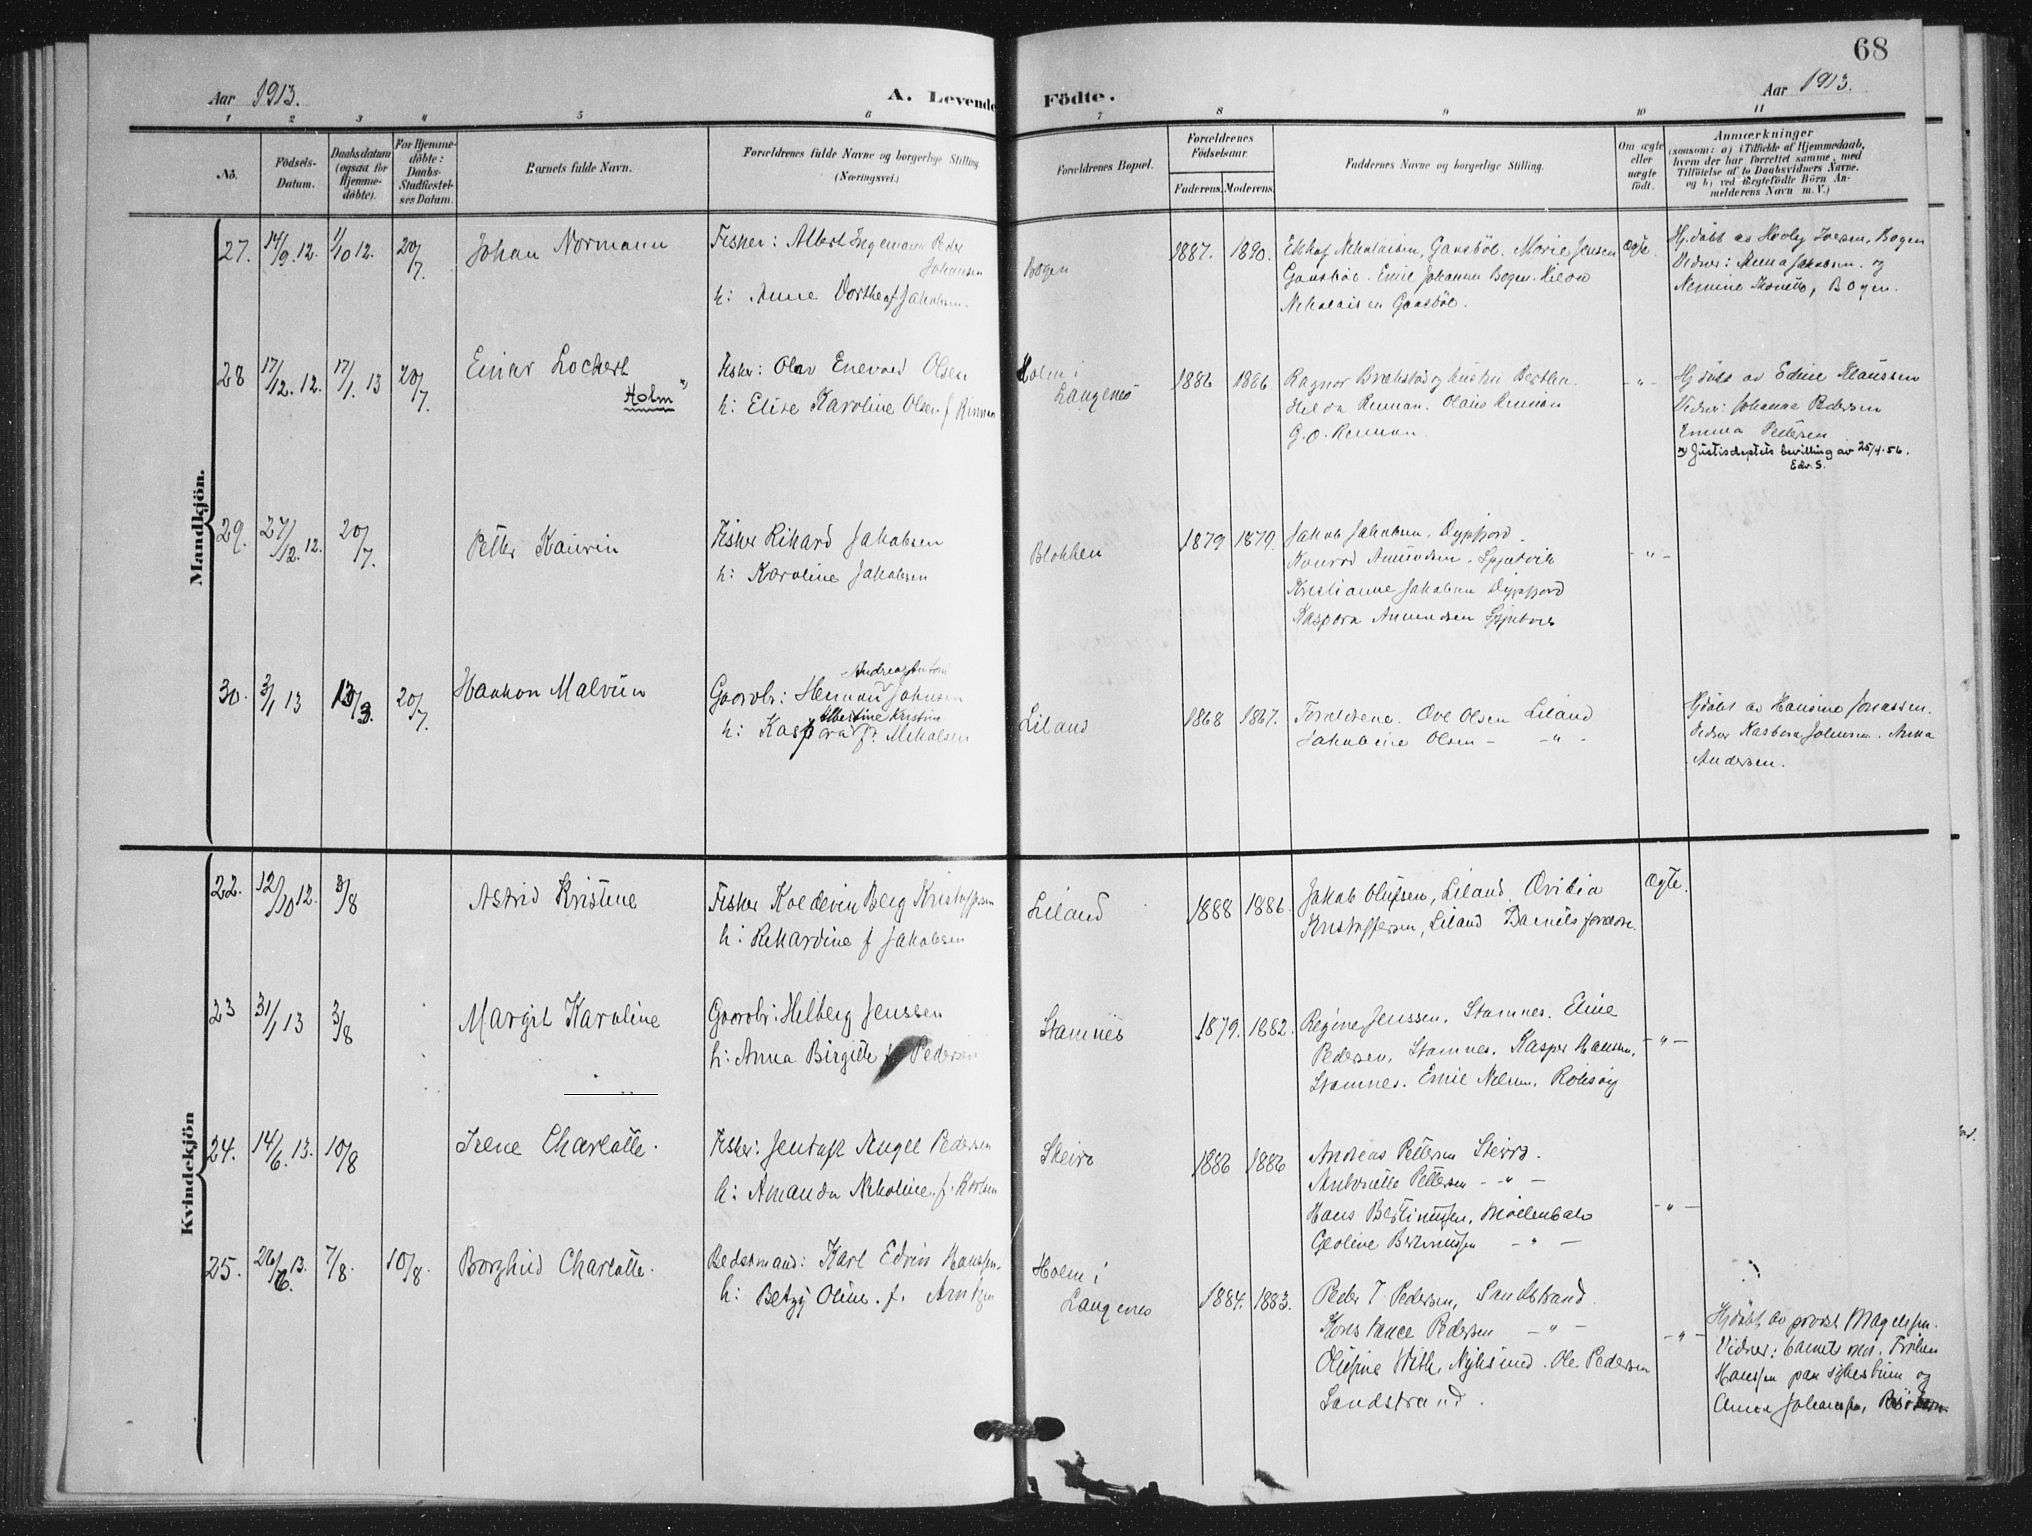 68
Aar 1913.
A. Levende Födte.
Aar 1913.
1 2 3 4 5 6 7 8 9 10 11
No.
Födsels-
Datum.
Daabsdatum
(ogsaa for
Hjemme-
döbte).
For Hjemme-
döbte:
Daabs-
Stadfæstel-
ses Datum.
Barnets fulde Navn.
Forældrenes fulde Navne og borgerlige Stilling
(Næringsvei.)
Forældrenes Bopæl.
Forældrenes
Födselsaar.
Faderens. Moderens.
Faddernes Navne og borgerlige Stilling.
Om ægte
eller
uægte
födt.
Anmærkninger
(saasom: a) i Tilfælde af Hjemmedaab,
hvem der har forrettet samme, med
Tilföielse af to Daabsvidners Navne,
og b) ved uægtefödte Börn An-
melderens Navn m. V.)
Mandkjön.
27. 14/9 12. 1/10 12. 20/7.
Johan Normann
Fisker: Albert Ingemann Peder
Johansen
h: Anne Dorthea f Jakobsen
Bogen
1887. 1890.
Nikolaisen, Gaasböl. Marie Jensen
Gaasböl. Emil Johansen Bogen.
Nikolaisen Gaasböl.
Ægte.
Hj. döbt av Iversen, Bogen
Vidner: Anna Jakobsen. og
Bogen.
28 17/12. 12. 17/1. 13 20/7.
Einar Lockert
Holm x)
Fisker: Olav Enevold Olsen
h: Elise Karoline Olsen f Rinnan
Holm i
Langenes
1886 1886
Ragnar
Hilda Rennan. Olaus Rennan
G. O. Rennan.
- " -
Hj döbt av Edine Klaussen
Vidner: Johanna Pedersen
Emma Pettersen
x) Justisdeptets bevilling av 25/4-56.
Edv. S.
29. 27/12. 12. 20/7.
Petter Kaurin
Fisker Rikard Jakobsen
h: Karoline Jakobsen
Blokken
1879 1879.
Jakob Jakobsen, Dypfjord.
Konrad Amundsen.
Kristianne Jakobsen Dypfjord
Kaspara Amundsen
- " -
30. 3/1 13 13/3. 20/7.
Haakon Malvin
Andreas Anton
Gaardbr: Herman Johnsen
Albertine Kristine
h: Kaspara f: Mikalsen
Liland
1868 1867.
Forældrene. Ove Olsen Liland
Jakobine Olsen - " -
Hjdöbt av Hansine Jonassen.
Vidner Kasbera Johnsen. Anna
Andersen.
Kvindekjön
22. 12/10 12. 3/8
Astrid Kristine
Fisker Koldevin Berg Kristoffersen
h: Rikardine f Jakobsen
Liland
1888 1886.
Jakob Olufsen, Liland. Ovidia
Kristoffersen, Liland Barnets forældre.
Ægte.
23 31/1 13 3/8
Margit Karoline
Gaardbr: Hilberg Jenssen
h: Anna Birgitte f Pedersen
Stamnes
1879. 1882.
Regine Jenssen, Stamnes. Eline
Pedersen, Stamnes. Kasper Hansen,
Stamnes. Emil Nilsen,
- " -
24. 14/6. 13. 10/8
Irene Charlotte.
Fisker: Jentoft Angel Pedersen
h: Amanda Nikoline. f. Karlsen
Skeirø
1886 1886
Andreas Pettersen
Antonette Pettersen - " -
Hans Bertinussen,
Geoline Bertinussen - " -
- " -
25. 26/6. 13. 7/8. 10/8.
Borghild Charlotte.
Bedstmand: Karl Edvin Hanssen.
h: Betzy Oline. f. Arntzen
Holm i
Langenes
1884. 1883.
Peder T Pedersen, Sandstrand.
Konstance Pedersen - " -
Olufine With, Nyksund. Ole Pedersen
Sandstrand.
- " -
Hjdöbt av provst Magelssen.
Vidner: barnets mor. Fröken
Hanssen paa sykestuen og
Anna Johanssen,